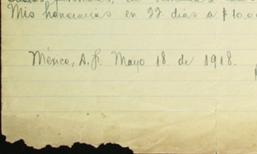 Mis honorarios en 33 días a $10.0
México, D.F. Mayo 18 de 1918.